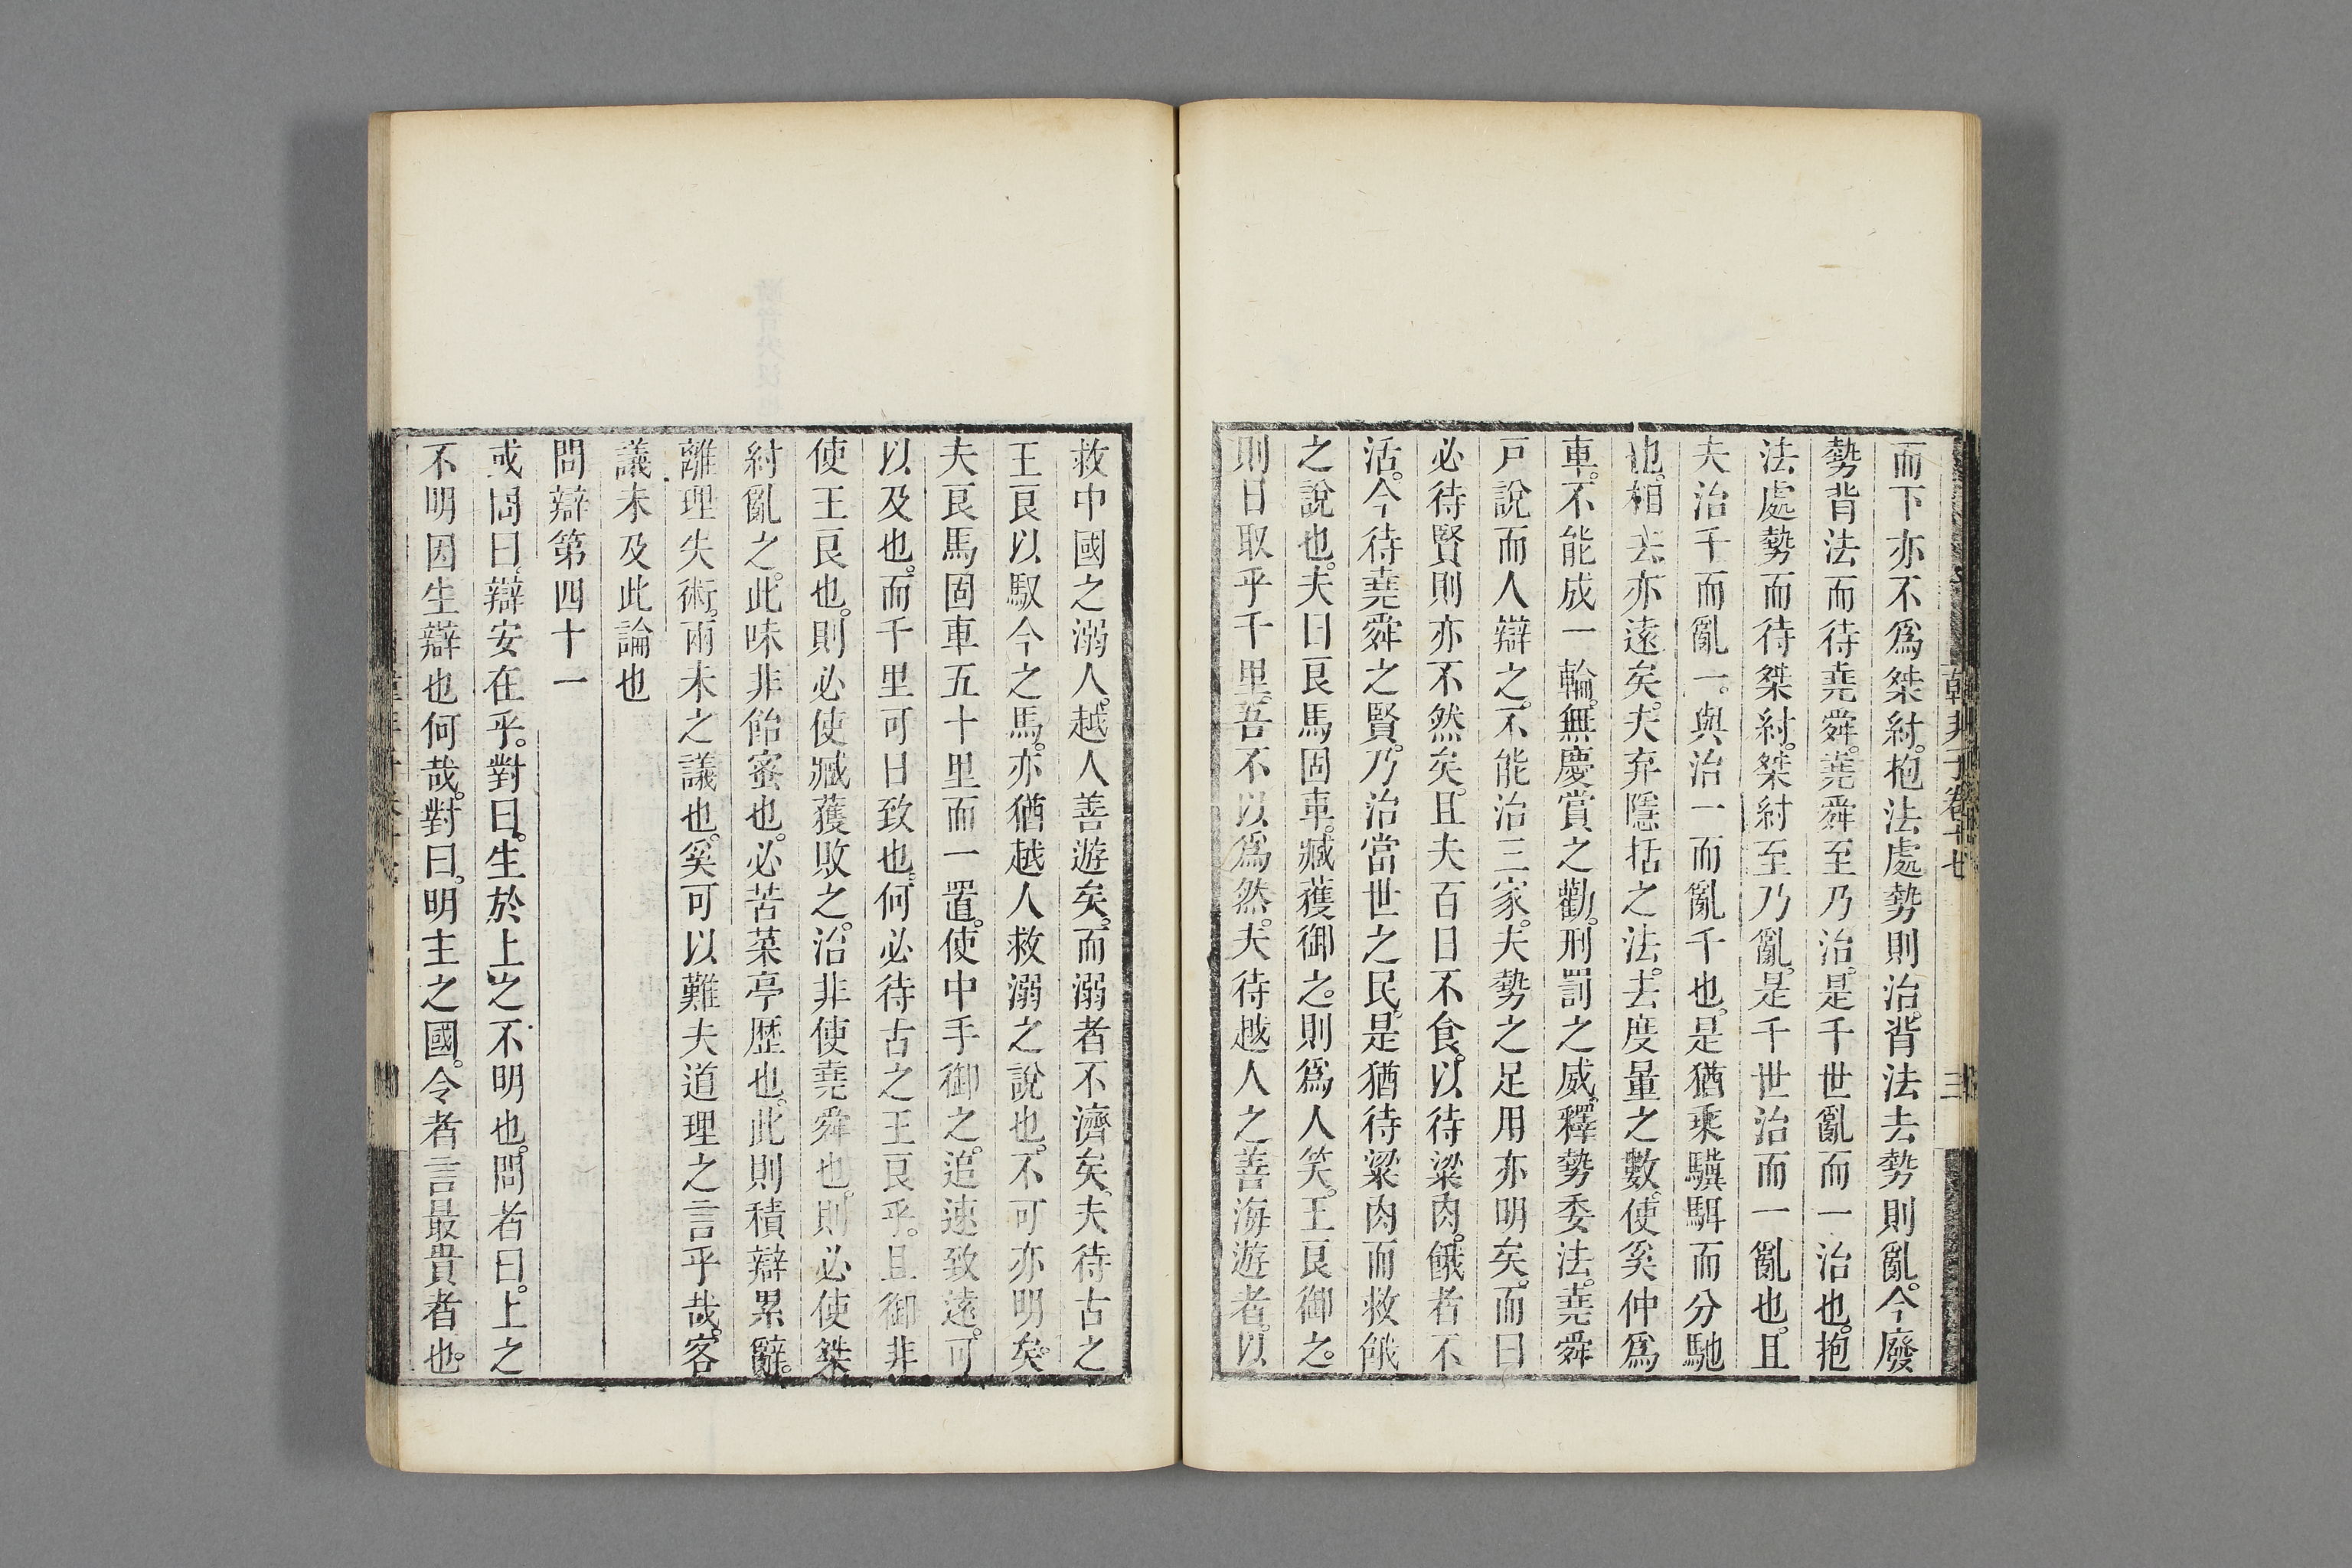 韓非子卷十七
三
而下亦不爲桀紂。抱法處勢則治。背法去勢則亂。今廢
勢背法而待堯舜。堯舜至乃治。是千世亂而一治也。抱
法處勢而待桀紂。桀紂至乃亂。是千世治而一亂也。且
夫治千而亂一。與治一而亂千也。是猶乘驥駬而分馳
也。相去亦遠矣。夫弃隱栝之法。去度量之數。使奚仲爲
車。不能成一輪。無慶賞之勸。刑罰之威。釋勢委法。堯舜
戸說而人辯之。不能治三家。夫勢之足用亦明矣。而曰
必待賢則亦不然矣。且夫百日不食。以待粱肉。餓者不
活。今待堯舜之賢。乃治當世之民。是猶待粱肉而救餓
之說也。夫曰良馬固車。臧獲御之。則爲人笑。王良御之。
則日取乎千里。吾不以爲然。夫待越人之善海遊者。以
救中國之溺人。越人善遊矣。而溺者不濟矣。夫待古之
王良以馭今之馬。亦猶越人救溺之說也。不可亦明矣。
夫良馬固車五十里而一置。使中手御之。追速致遠。可
以及也。而千里可日致也。何必待古之王良乎。且御非
使王良也。則必使臧獲敗之。治非使堯舜也。則必使桀
紂亂之。此味非飴蜜也。必苦菜亭歷也。此則積辯累辭。
離理失術。兩未之議也。奚可以難夫道理之言乎哉。客
議未及此論也
問辯第四十一
或問曰。辯安在乎。對曰。生於上之不明也。問者曰。上之
不明因生辯也何哉。對曰。明主之國。令者言最貴者也。